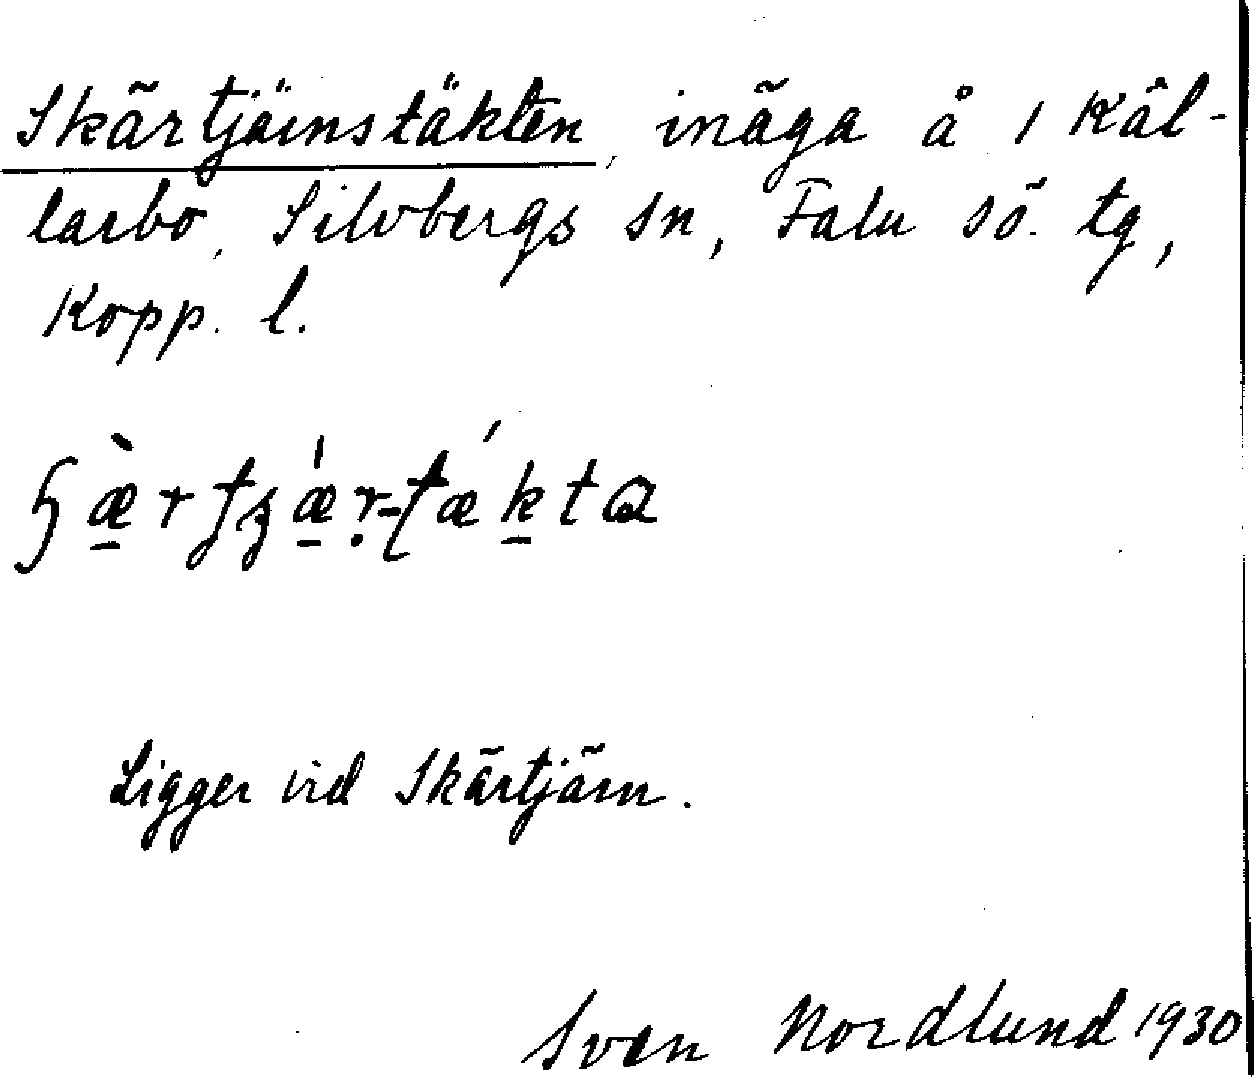 Skärtjärnstäkten, inäga å 1 Käl-
larbo, Silvbergs sn, Falu sö. tg,
Kopp. l.
Ligger vid Skärtjärn.
Sven Nordlund 1930